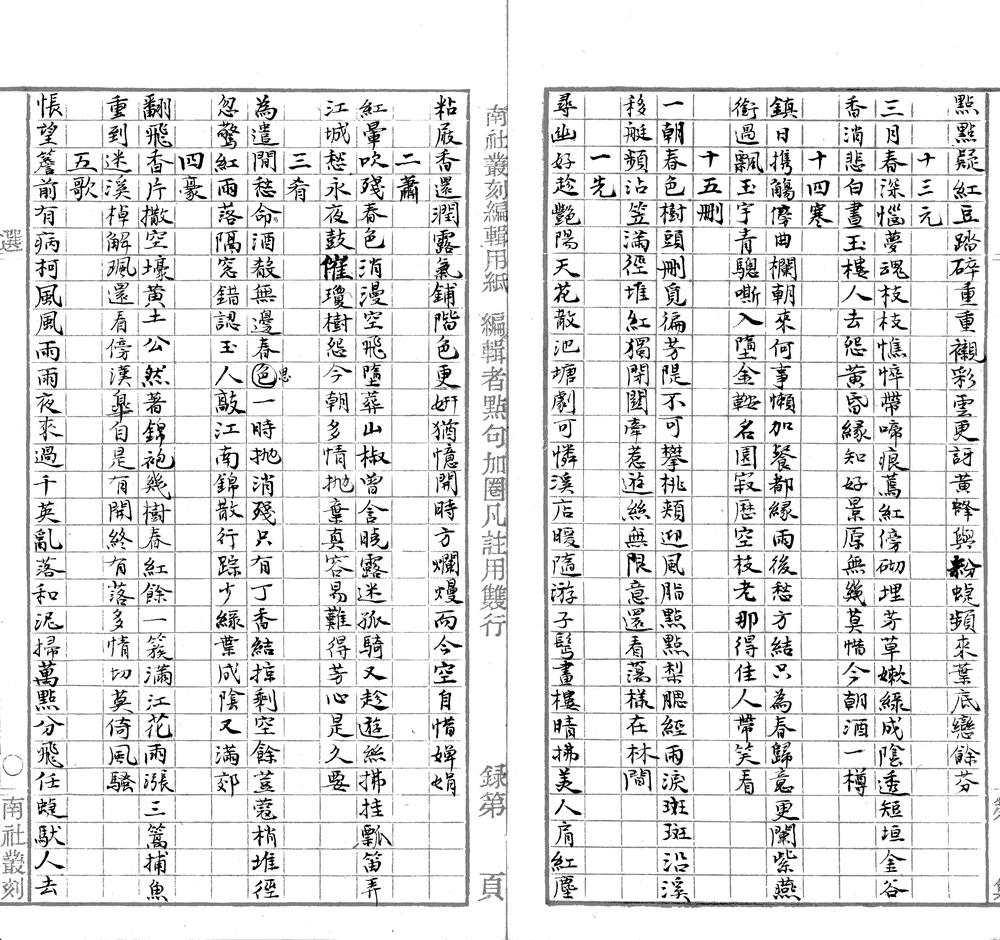 點點疑紅豆踏碎重重襯彩雲更訝黃蜂與粉蜨頻來葉底戀餘芬
十三元
三月春深惱夢魂枝枝憔悴帶啼痕蔫紅傍砌埋芳草嫰綠成陰透短垣金谷
香消悲白晝玉樓人去怨黃昏緣知好景原無幾莫惜今朝酒一樽
十四寒
鎮日携觴傍曲欄朝來何事懶加餐都緣雨後愁方結只為春歸意更闌紫燕
銜過飄玉宇青驄嘶入墮金鞍名園寂歷空枝老那得佳人帶笑看
十五刪
一朝春色樹頭刪覓徧芳隄不可攀桃頰迎風脂點點梨腮經雨淚斑斑沿溪
移艇頻沾笠滿徑堆紅獨閉關牽惹遊絲無限意還看蕩樣在林間
一先
尋幽好趁艷陽天花散池塘劇可憐溪店暖隨游子騎畫樓晴拂美人肩紅塵
南社叢刻編輯用紙 編輯者點句加圈凡註用雙行 錄第 頁
粘屐香還潤露氣鋪階色更妍猶憶開時方爛熳而今空自惜嬋娟
二蕭
紅暈吹殘春色消漫空飛墮葬山椒曾含曉露迷孤騎又趁遊絲拂挂瓢笛弄
江城愁永夜鼓催瓊樹怨今朝多情拋棄真容易難得芳心是久要
三肴
為遣閒愁命酒殽無邊春色思一時拋消殘只有丁香結掠剩空餘荳蔻梢堆徑
忽驚紅雨落隔窓錯認玉人敲江南錦散行踪少綠葉成陰又滿郊
四豪
翻飛香片撒空壕黃土公然著錦袍幾樹春紅餘一簔滿江花雨漲三篙捕魚
重到迷溪棹解珮還看傍漢臯自是有開終有落多情切莫倚風騷
五歌
悵望簷前有病柯風風雨雨夜來過千英亂落和泥掃萬點分飛任蜨馱人去
選 南社叢刻